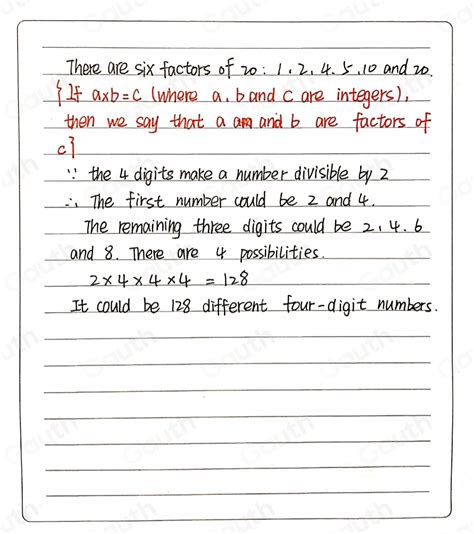 There are six factors of 20: 1, 2, 4, 5, 10 and 20.
{If a×b=c (where a, b and c are integers),
then we say that a and b are factors of
c}
∵ the 4 digits make a number divisible by 2
∴ The first number could be 2 and 4.
The remaining three digits could be 2, 4, 6
and 8. There are 4 possibilities.
2×4×4×4 = 128
It could be 128 different four-digit numbers.